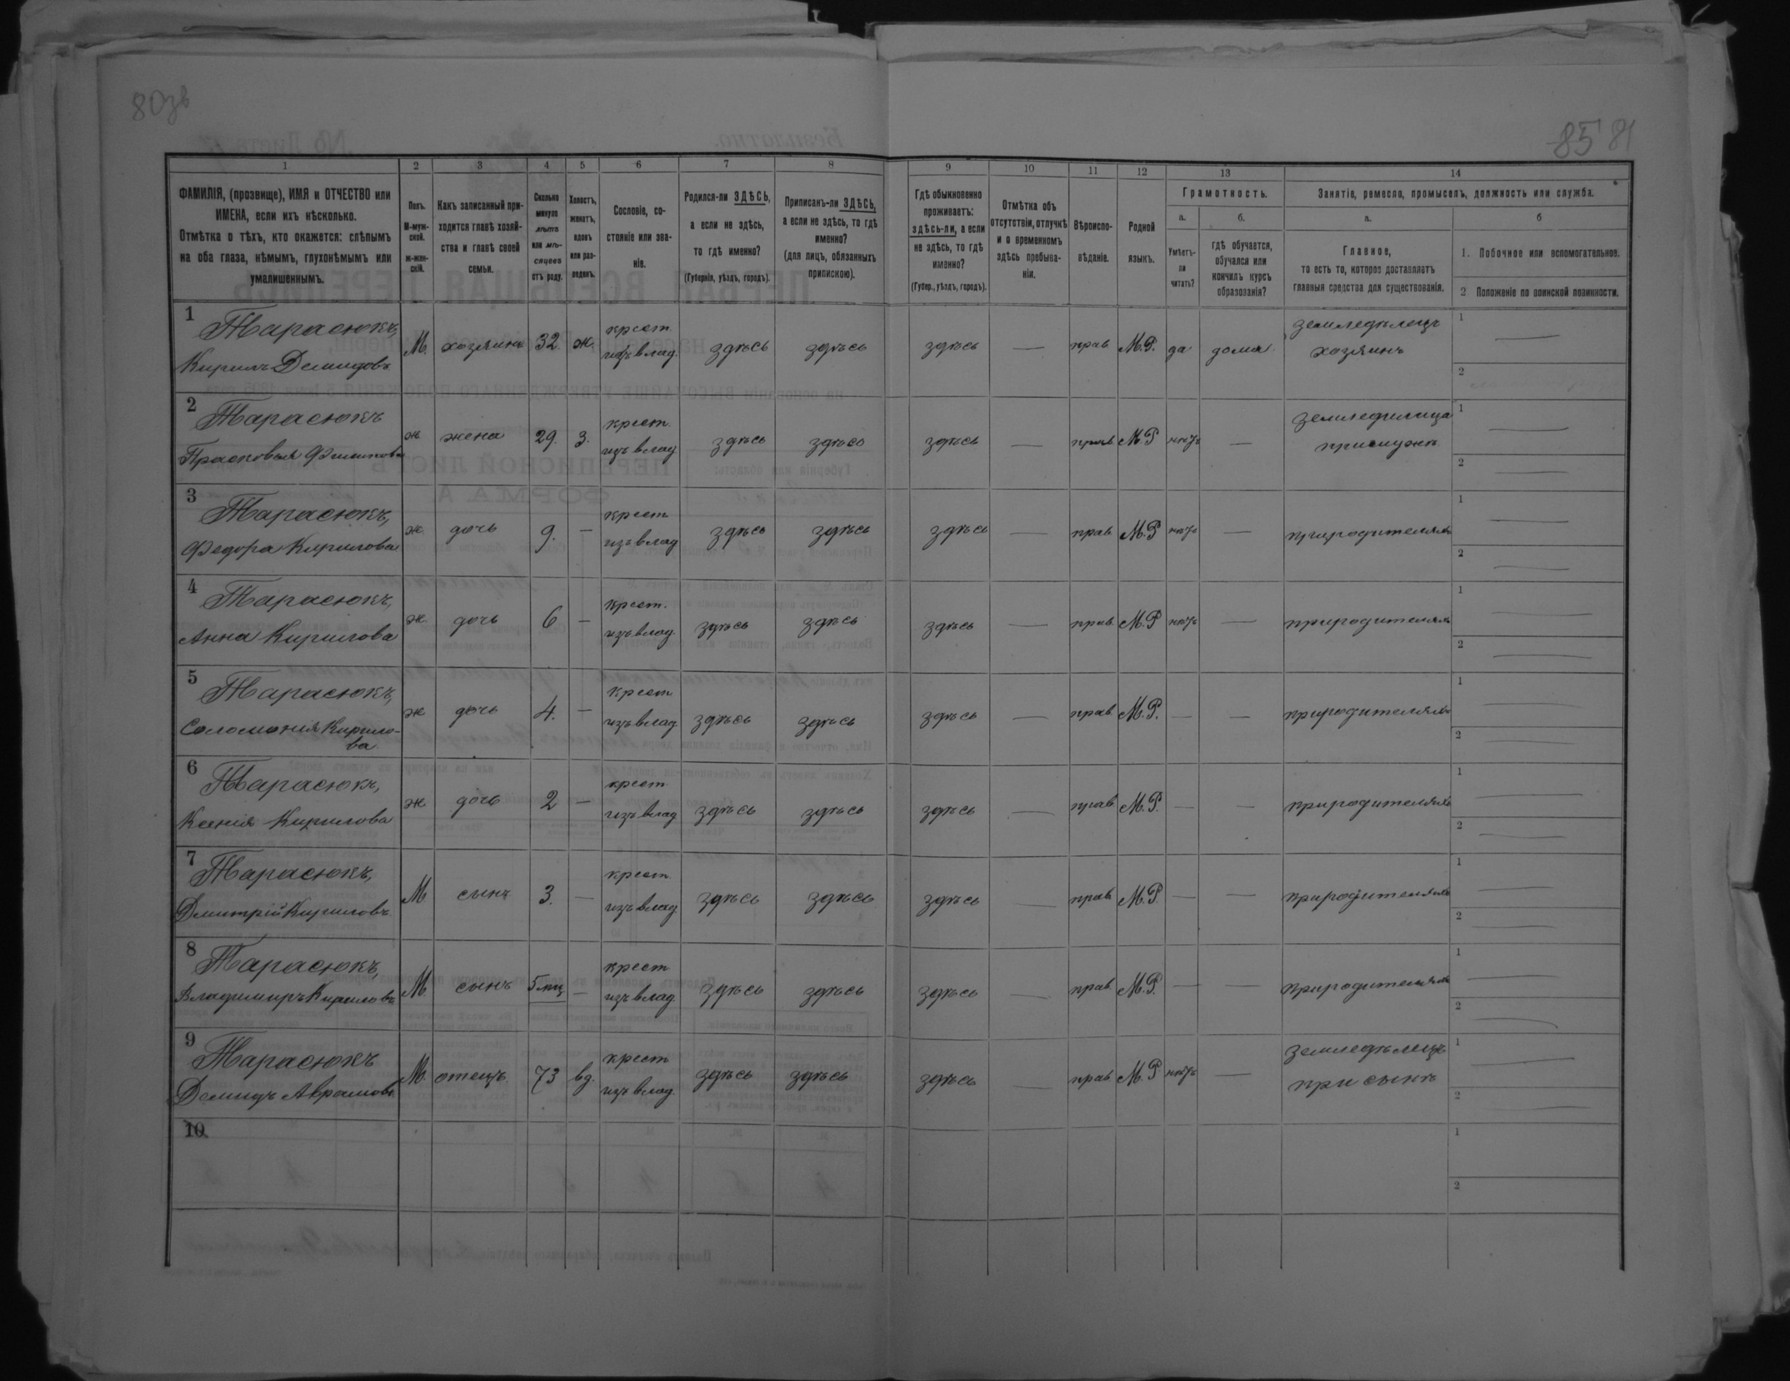 80зв
85 81
1 2 3 4 5 6 7 8 9 10 11 12 13 14
ФАМИЛІЯ, (прозвище), ИМЯ и ОТЧЕСТВО или ИМЕНА, если ихъ нѣсколько.
Отмѣтка о тѣхъ, кто окажется: слѣпымъ на оба глаза, нѣмымъ, глухонѣмымъ или умалишеннымъ.
Полъ. М-мужской. ж-женскій.
Какъ записанный приходится главѣ хозяйства и главѣ своей семьи.
Сколько минуло лѣтъ или мѣсяцевъ отъ роду.
Холостъ, женатъ, вдовъ или разведенъ.
Сословіе, состояніе или званіе.
Родился-ли ЗДѢСЬ, а если не здѣсь, то гдѣ именно?
(Губернія, уѣздъ, городъ).
Приписанъ-ли ЗДѢСЬ, а если не здѣсь, то гдѣ именно?
(для лицъ, обязанныхъ припискою).
Гдѣ обыкновенно проживаетъ: здѣсь-ли, а если не здѣсь, то гдѣ именно?
(Губер., уѣздъ, городъ).
Отмѣтка объ отсутствіи, отлучкѣ и о временномъ здѣсь пребываніи.
Вѣроисповѣданіе.
Родной языкъ.
Грамотность.
а. Умѣетъ-ли читать?
б. гдѣ обучается, обучался или кончилъ курсъ образованія?
Занятіе, ремесло, промыселъ, должность или служба.
а. Главное, то есть то, которое доставляетъ главныя средства для существованія.
б
1. Побочное или вспомогательное.
2 Положеніе по воинской повинности.
1 Тарасюкъ, Кирилъ Демидовъ М. хозяинъ 32 ж. крест. изъ влад. здѣсь здѣсь здѣсь — прав М.Р. да дома земледѣлецъ хозяинъ 1 — 2
2 Тарасюкъ Прасковья Филипова ж жена 29. з. крест. изъ влад здѣсь здѣсь здѣсь — прав М.Р нѣтъ — 1 — 2 —
3 Тарасюкъ, Федора Кирилова ж дочь 9. — крест изъ влад здѣсь здѣсь здѣсь — прав М.Р нѣтъ — при родителяхъ 1 — 2 —
4 Тарасюкъ, Анна Кирилова ж дочь 6 — крест. изъ влад. здѣсь здѣсь здѣсь — прав М.Р нѣтъ — при родителяхъ 1 — 2 —
5 Тарасюкъ, Соломонія Кирилова ж дочь 4. — крест изъ влад здѣсь здѣсь здѣсь — прав М.Р. — — при родителяхъ 1 — 2 —
6 Тарасюкъ, Ксенія Кирилова ж дочь 2 — крест изъ влад здѣсь здѣсь здѣсь — прав М.Р — — при родителяхъ 1 — 2 —
7 Тарасюкъ, Дмитрій Кириловъ М сынъ 3. — крест изъ влад здѣсь здѣсь здѣсь — прав М.Р. — — при родителяхъ 1 — 2 —
8 Тарасюкъ, Владимиръ Кириловъ М сынъ 5 мц — крест изъ влад. здѣсь здѣсь здѣсь — прав М.Р. — — при родителяхъ 1 — 2 —
9 Тарасюкъ Демидъ Аврамовъ М. отецъ 73 вд. крест изъ влад. здѣсь здѣсь здѣсь — прав М.Р нѣтъ — земледѣлецъ при сынѣ 1 — 2 —
10. 1 2